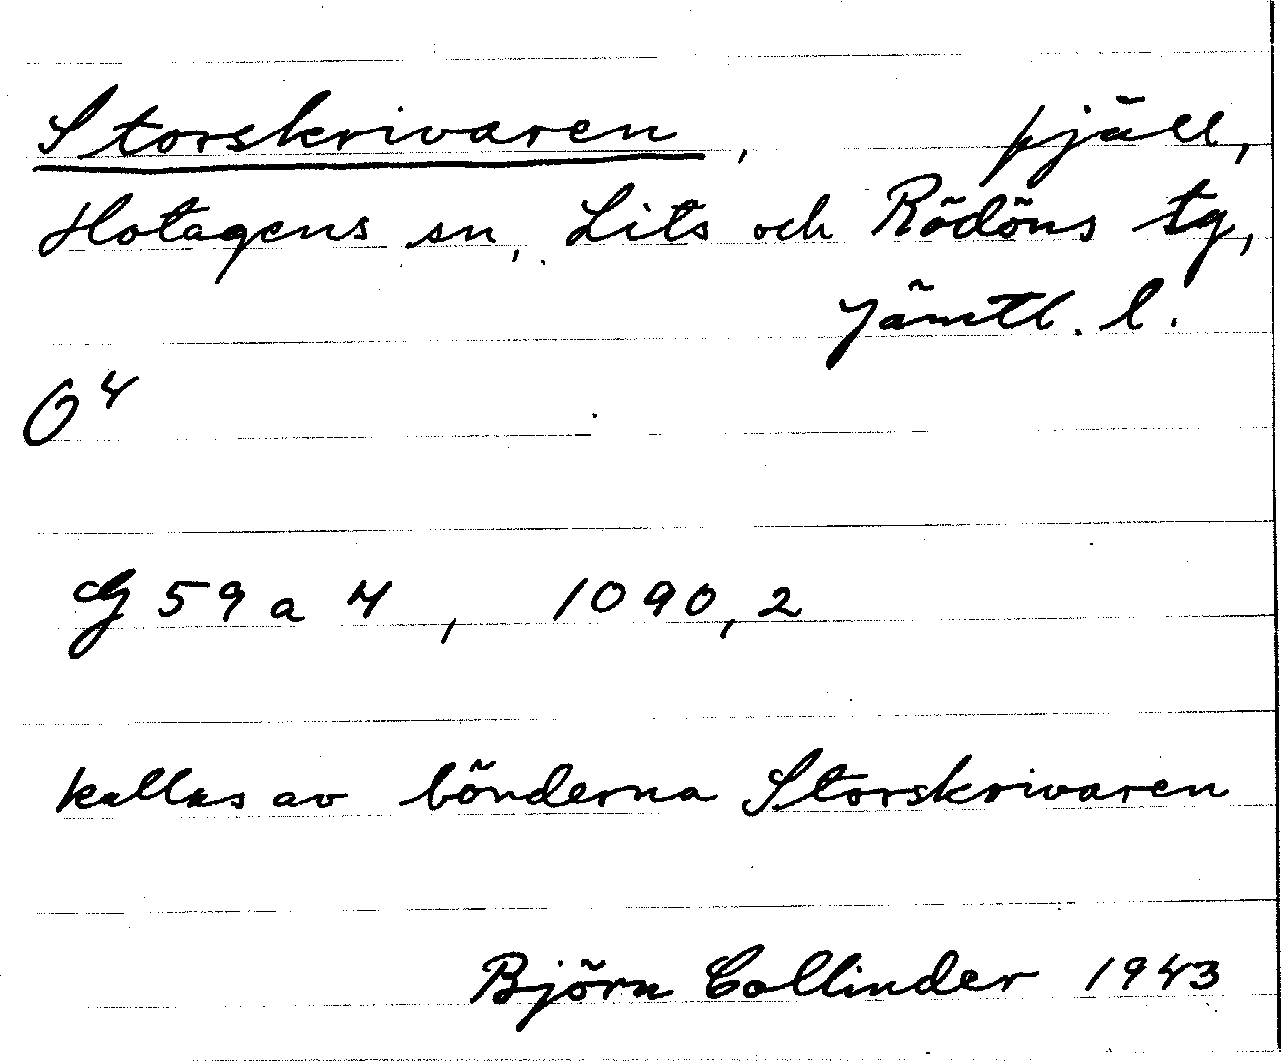 Storskrivaren, fjäll,
Hotagens sn, Lits och Rödöns tg,
Jämtl. l.
O4
G 59 a 4, 1090,2
kallas av bönderna Storskrivaren
Björn Collinder 1943